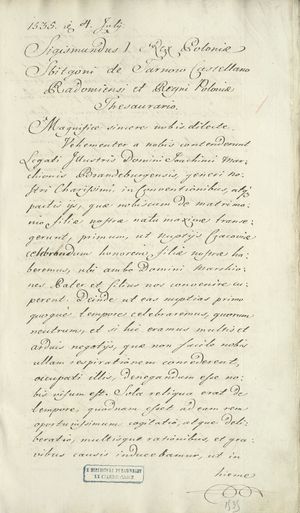 1535. d 4. Julij
Sigismundus I. Rex Poloniæ
Sbitgoni de Tarnow Castellano
Radomiensi et Regni Poloniæ
Thesaurario.
Magnifice sincere nobis dilecte.
Vehementer a nobis contenderunt
Legati Illustris Domini Joachimi Mar-
chionis Brandeburgensis, generi no-
stri Charissimi, in Conventionibus, atq
pactis ijs, quæ nobiscum de matrimo-
nio filiæ nostræ natu maximæ transe-
gerunt, primum, ut nuptijs Cracoviæ
celebrandum honorem filiæ nostræ ha-
beremus, ubi ambo Domini Marchio-
nes Pater et filius nos convenire cu-
perent. Deinde ut eas nuptias primo
quoque tempore celebraremus, quorum
neutrum, et si hic eramus multis et
arduis negotijs, quæ non facile nobis
ullam respirationem concederent,
occupati illis, denegandum esse no-
bis visum est. Sola reliqua erat de
tempore, quodnam esset ad eam rem
opportunissimum cogitatio, atque deli-
beratio, multisque rationibus, et gra-
vibus causis inducebamur, ut in
hieme
1535